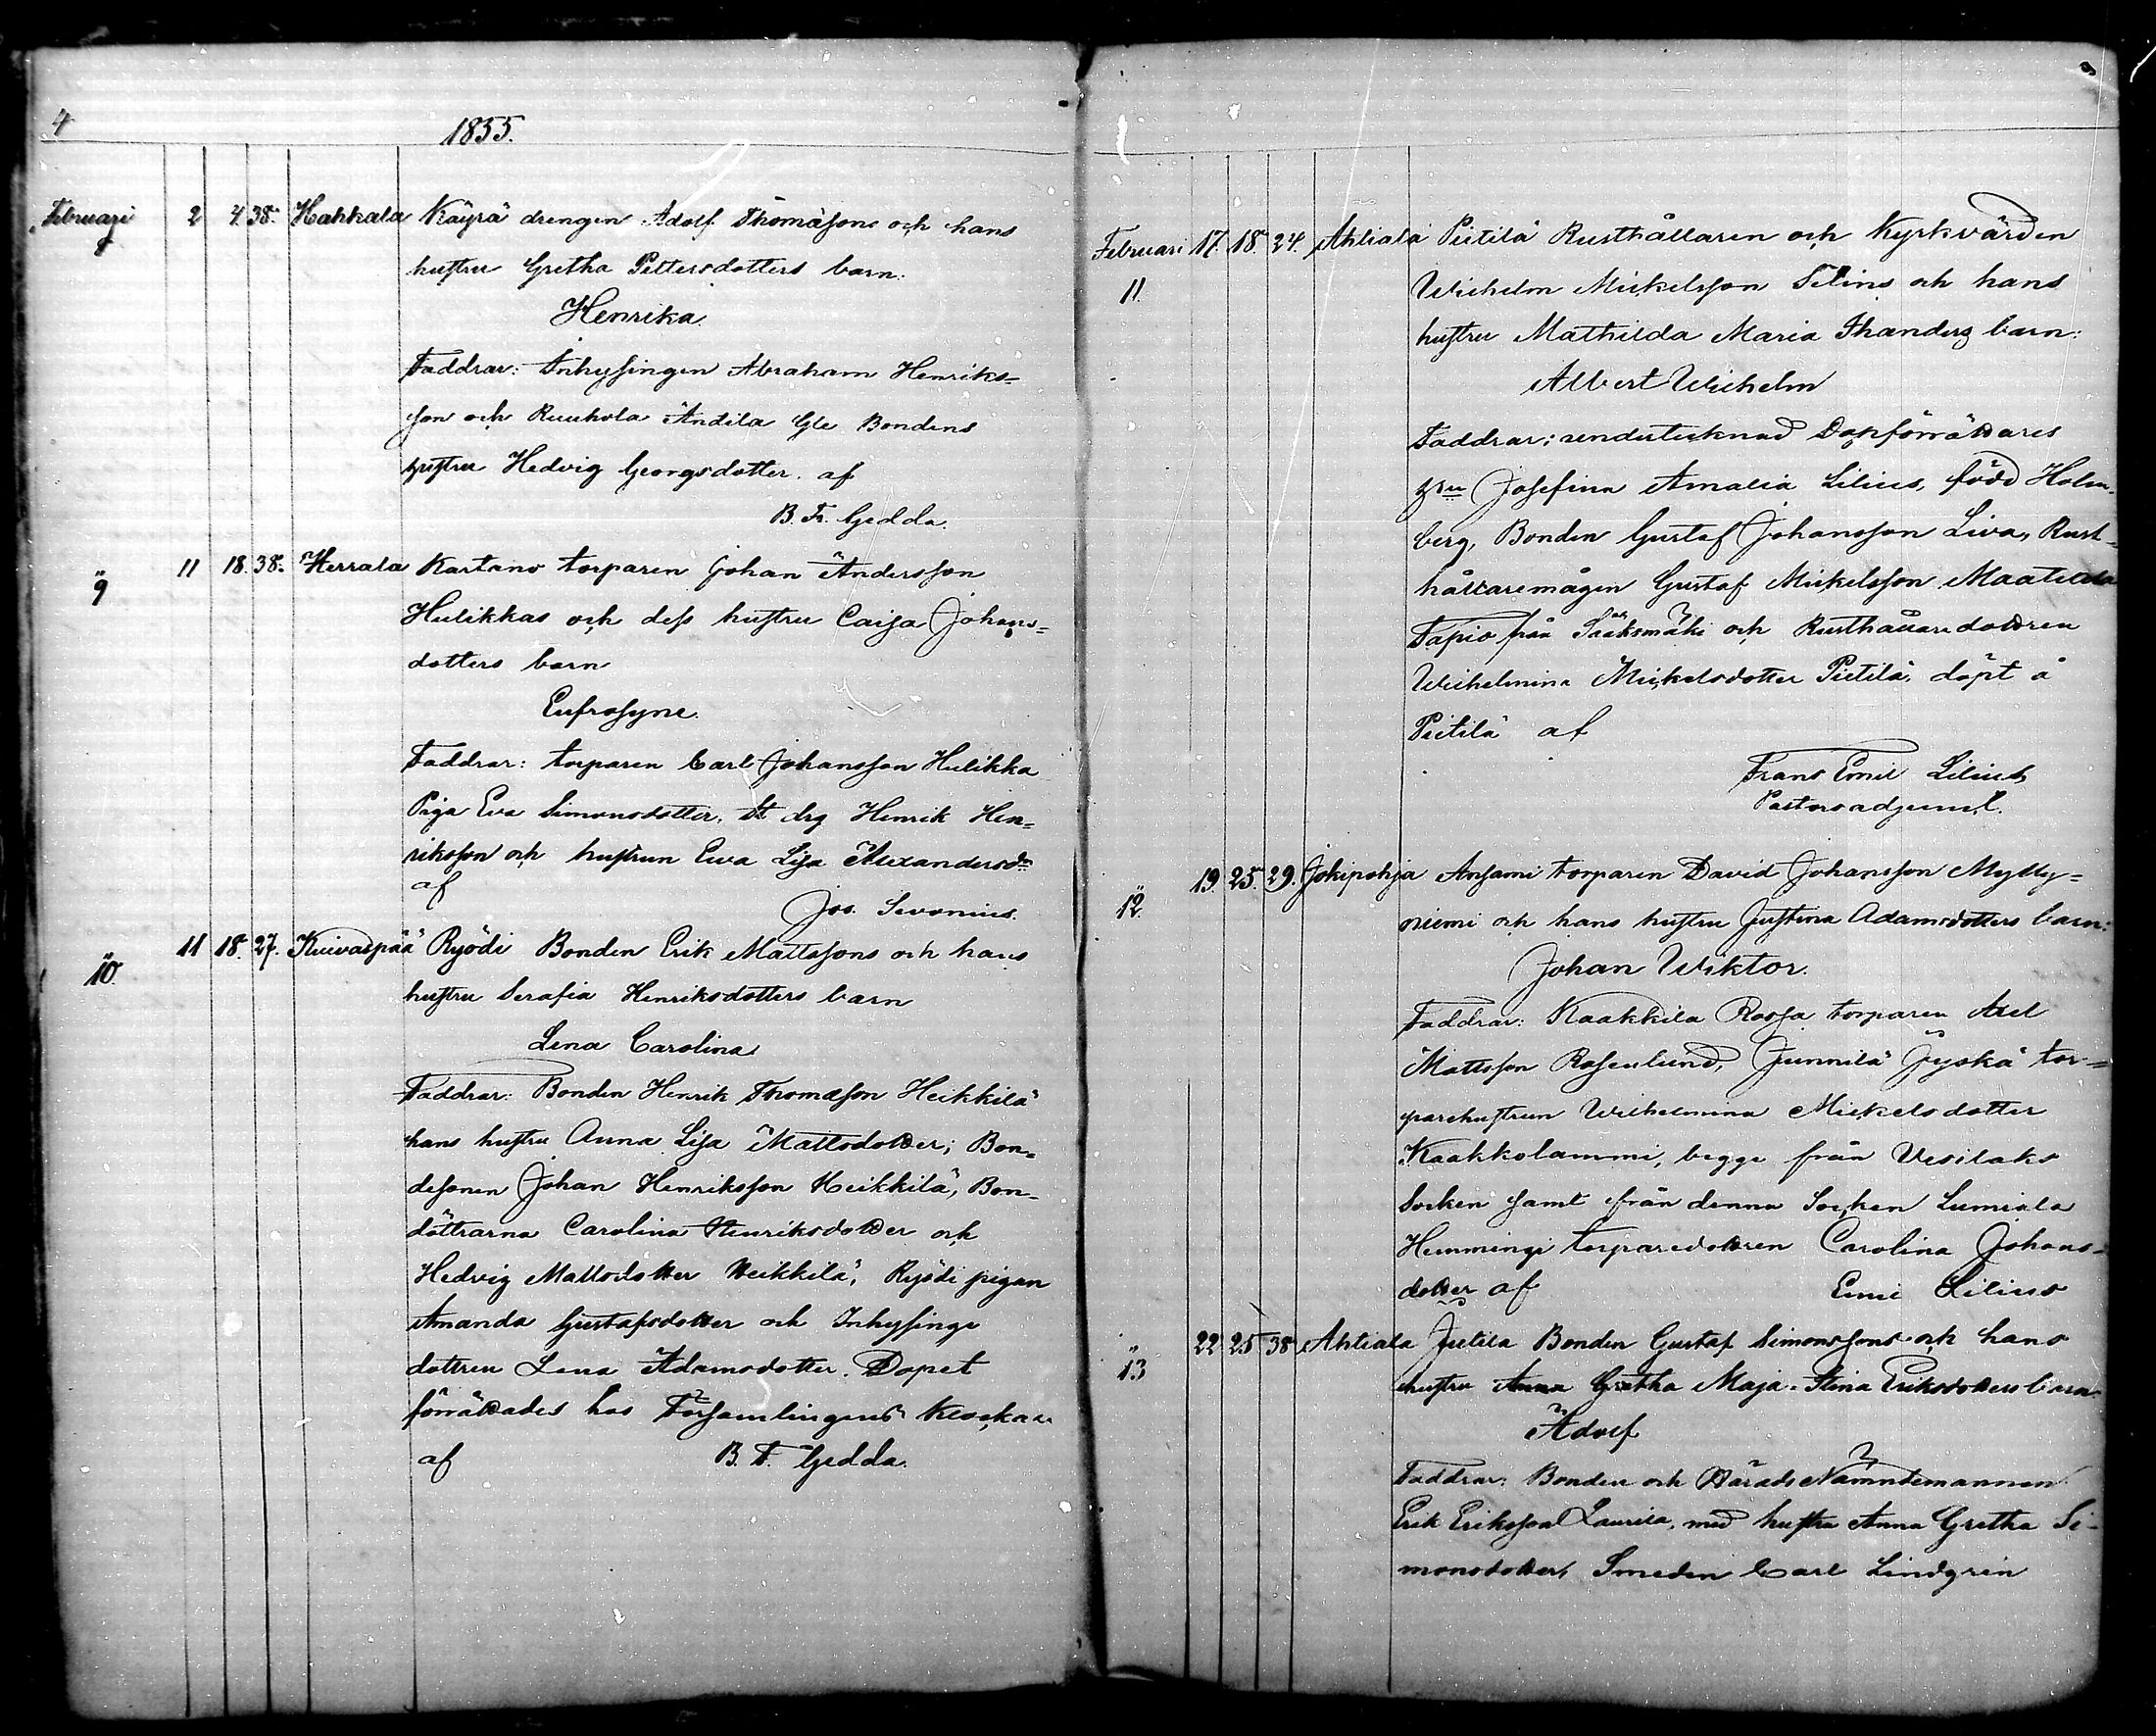 4
1855.
Februari 2 4. 38. Hakkala Käyrä drengen Adolf Thomasons och hans
8
hustru Gretha Pettersdotters barn.
Henrika
Faddrar: Inhysingen Abraham Henriks=
son och Ruuhola Andila Gle Bondens
hustru Hedvig Georgsdotter. af
B. Fr. Gedda.
" 11 18. 38. Herrala Kartano torparen Johan Andersson
9
Hulikkas och dess hustru Caisa Johans=
dotters barn
Eufrosyne.
Faddrar: torparen Carl Johansson Hulikka
Piga Eva Simonsdotter. St drg Henrik Hen=
riksson och hustrun Eva Lisa Alexandersdr
af
Jos. Sevonius.
" 11 18. 27. Kuivaspää Ryödi Bonden Erik Mattssons och hans
10.
hustru Serafia Henriksdotters barn
Lena Carolina
Faddrar: Bonden Henrik Thomasson Heikkilä
hans hustru Anna Lisa Mattsdotter; Bon=
desonen Johan Henriksson Heikkilä, Bon=
döttrarna Carolina Henriksdotter och
Hedvig Mattsdotter Heikkilä, Ryödi pigan
Amanda Gustafsdotter och Inhysinge
dottren Lena Adamsdotter. Dopet
förrättades hos Församlingens Klockare
af B. F. Gedda.
Februari 17. 18. 24. Ahtiala Pietilä Rusthållaren och Kyrkvärden
11.
Wilhelm Mickelsson Selins och hans
hustru Mathilda Maria Thanders barn:
Albert Wilhelm
Faddrar: undertecknad Dopförrättares
hru Josefina Amalia Lilius, född Holm=
berg, Bonden Gustaf Johansson Liva, Rust=
hållaremågen Gustaf Mickelsson Maatiala
Tapio från Sääksmäki och Rusthållaredottren
Wilhelmina Mickelsdotter Pietilä, döpt å
Pietilä af
Frans Emil Lilius
Pastorsadjunct.
" 19. 25. 29. Jokipohja Ansami torparen David Johansson Mylly=
12.
niemi och hans hustru Justina Adamsdotters barn:
Johan Wiktor.
Faddrar: Kaakkila Rossa torparen Axel
Mattsson Rosenlund, Junnilä Jyskä tor=
parehustrun Wilhelmina Mickelsdotter
Kaakkolammi, begge från Vesilaks
Socken samt från denna Socken Lumiala
Hemmingi torparedottren Carolina Johans=
dotter af Emil Lilius
" 22 25 38 Ahtiala Jutila Bonden Gustaf Simonssons och hans
13
hustru Anna Gretha Maja Stina Eriksdotters barn
Adolf
Faddrar: Bonden och Härads Nämndemannen
Erik Eriksson Laurila, med hustru Anna Gretha Si=
monsdotter, Smeden Carl Lindgrén